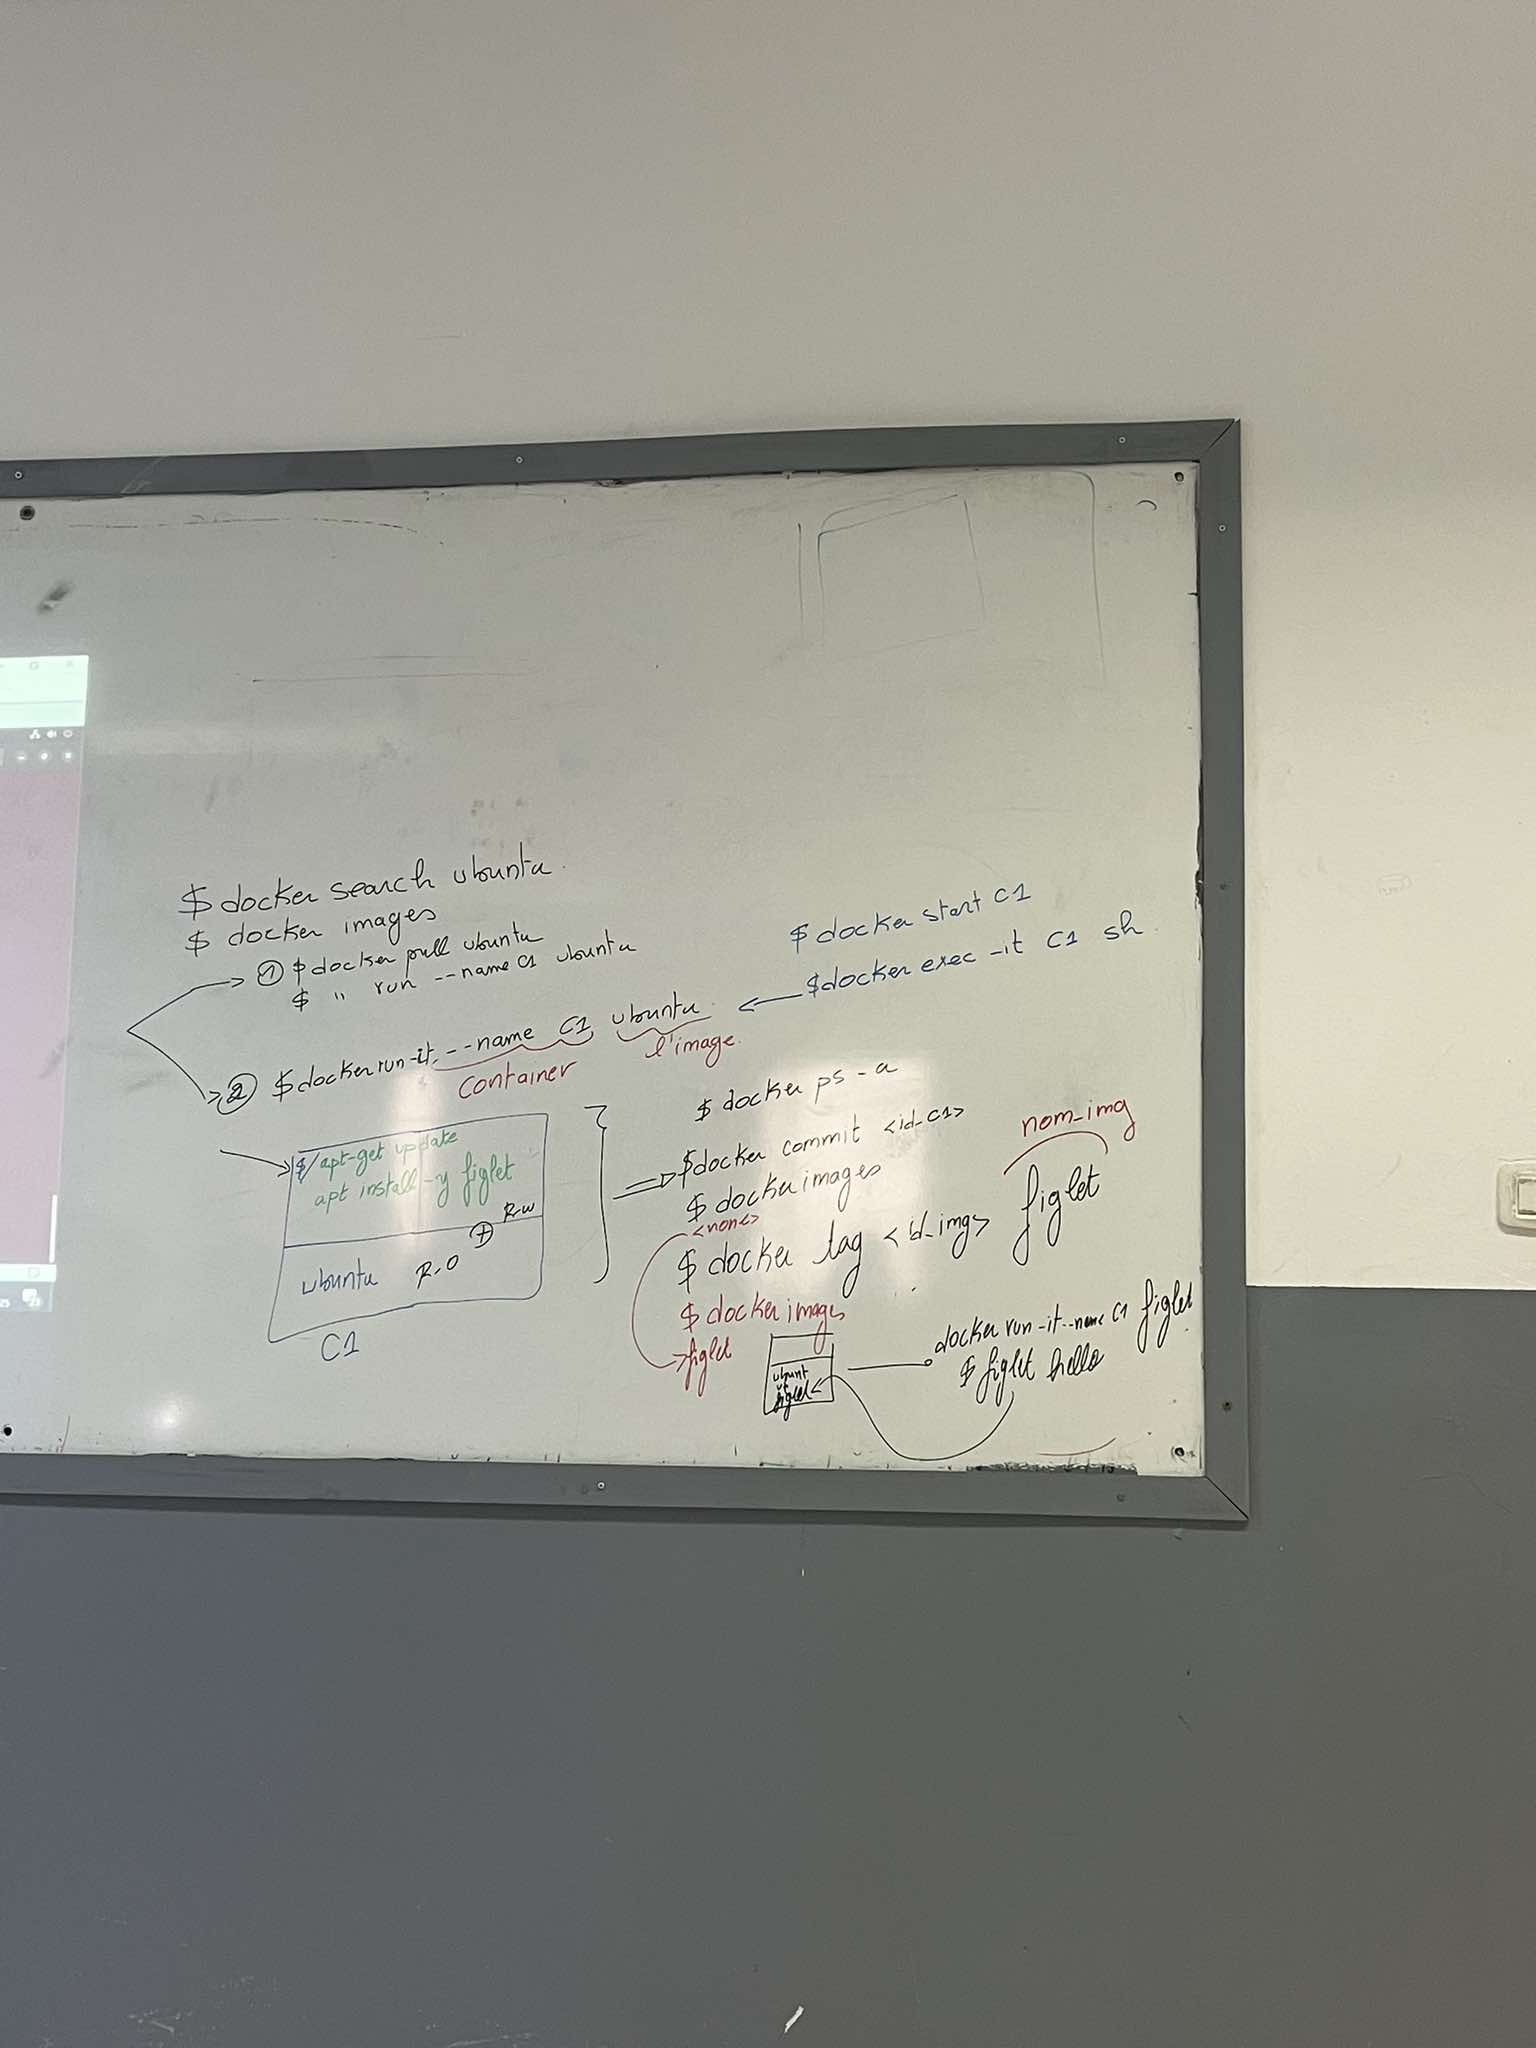 $ docker search ubuntu.
$ docker images
① $ docker pull ubuntu
$ " run --name C1 ubuntu
② $ docker run -it --name C1 ubuntu
container
l'image.
$ docker start C1
$ docker exec -it C1 sh.
$/apt-get update
apt install -y figlet
R-W
+
ubuntu R.O
C1
$ docker ps -a
$ docker commit <id_C1>
$ docker images
<none>
nom_img
$ docker tag <id_img> figlet
$ docker images
figlet
ubunt
figlet
docker run -it --name C1 figlet
$ figlet hello